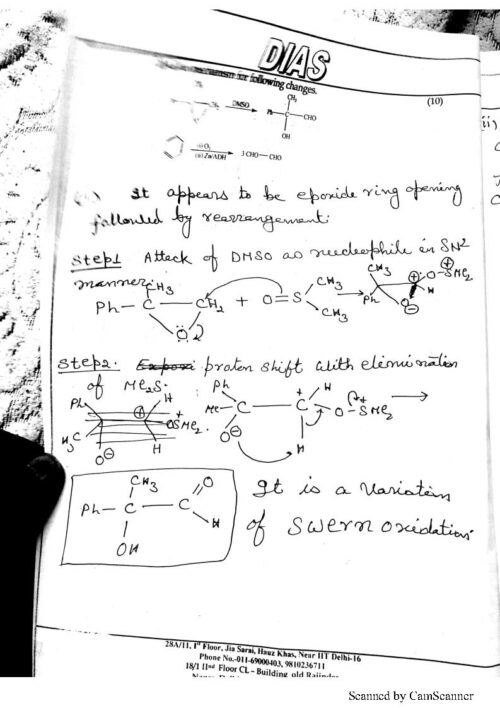 DIAS
for following changes.
(10)
DMSO
CH₃
Ph—C—CHO
OH
(i) O₃
(ii) Zn/ADH
3 CHO—CHO
It appears to be epoxide ring opening
followed by rearrangement:
Step1 Attack of DMSO as nucleophile in SN²
manner:
CH₃
Ph—C—CH₂ + O=S
CH₃
CH₃
Ö
CH₃
Ph
⊕
O—SMe₂
H
⊖
Step2. proton shift with elimination
of Me₂S.
Ph
H
⊕
H₃C
OSMe₂
O⊖
H
Ph
Me—C—C—O—SMe₂
+
H
O⊖
H
CH₃
Ph—C—C
O
H
OH
It is a variation
of Swern oxidation.
28A/11, Iˢᵗ Floor, Jia Sarai, Hauz Khas, Near IIT Delhi-16
Phone No.-011-69000403, 9810236711
18/1 IIⁿᵈ Floor CL - Building old
Scanned by CamScanner